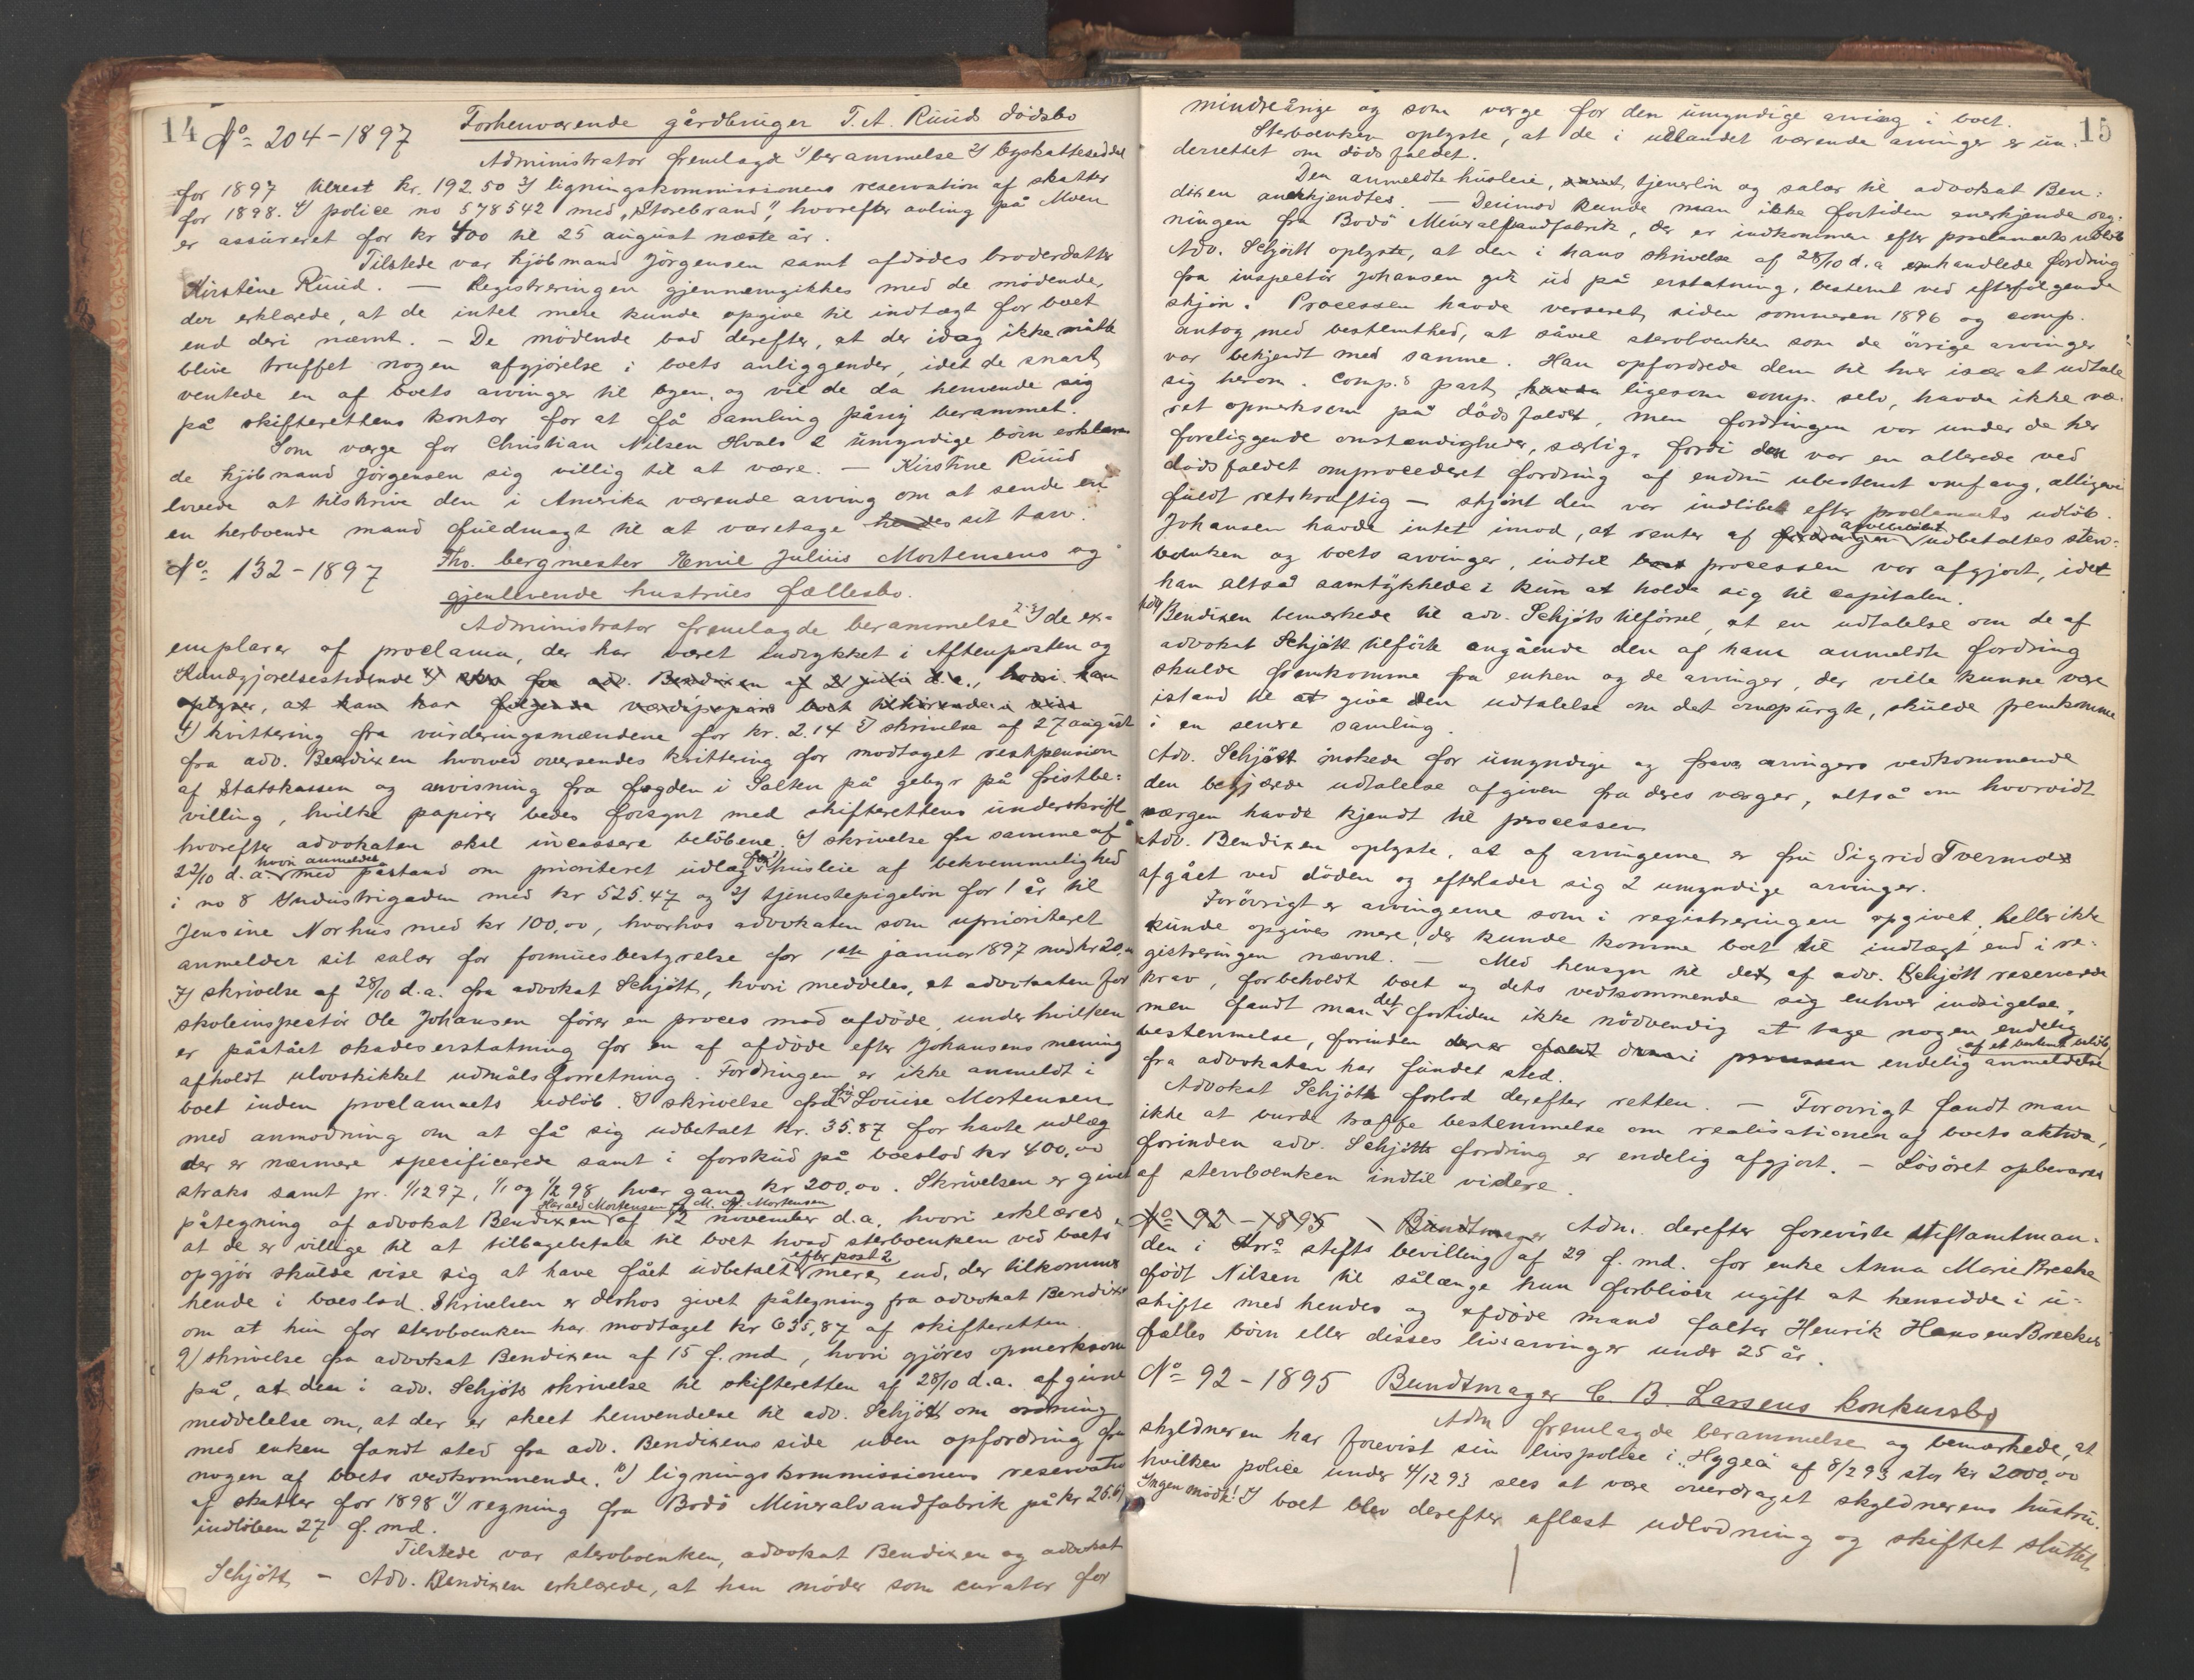 14
No 204-1897
Forhenværende gårdbruger T. A. Ruuds dödsbo
Administrator fremlagde 1) berammelse 2) byskatteseddel
for 1897 utrest kr. 192.50 3) ligningskommissionens reservation af skatter
for 1898. 4) police no 578542 med "Storebrand", hvorefter avling på Moen
er assureret for kr 400 til 25 august næste år.
Tilstede var kjöbmand Jörgensen samt afdödes broderdatter
Kirstine Ruud. — Registreringen gjennemgikkes med de mödende,
der erklærede, at de intet mere kunde opgive til indtægt for boet
end deri nævnt. — De mödende bad derefter, at der idag ikke måtte
blive truffet nogen afgjörelse i boets anliggender, idet de snart
ventede en af boets arvinger til byen, og vil de da henvende sig
på skifterettens kontor for at få samling påny berammet.
Som værge for Christian Nilsen Hvals 2 umyndige börn erklære-
de kjöbmand Jörgensen sig villig til at være. — Kirstine Ruud
lovede at tilskrive den i Amerika værende arving om at sende en
en herboende mand fuldmagt til at varetage hendes sit tarv.
No 132-1897
Fho. bergmester Emil Julius Mortensens og
gjenlevende hustrues fællesbo.
Administrator fremlagde berammelse 2-3) de ex-
emplarer af proclama, der har været indrykket i Aftenposten og
Kundgjørelsestidende 4) skr. fra adv. Bendixen af 2 juli d.a., hvori han
oplyser, at han har følgende værdipapirer boet tilhørende
4) kvittering fra vurderingsmændene for kr. 2.14 5) skrivelse af 27 august
fra adv. Bendixen hvorved oversendes kvittering for modtaget restpension
af Statskassen og anvisning fra fogden i Salten på gebyr på fristbe-
villing, hvilke papirer bedes forsynt med skifterettens underskrift
hvorefter advokaten skal incassere belöbene. 6) skrivelse fra samme af
22/10 d.a. hvori anmeldes med påstand om prioriteret udlæg for 1) husleie af bekvemmelighed
i no 8 Industrigaden med kr 525.47 og 2) tjenestepigelön for 1 år til
Jensine Norhus med kr 100,00, hvorhos advokaten som uprioriteret
anmelder sit salær for formuesbestyrelse for 1ste januar 1897 med kr 20,00
7) skrivelse af 28/10 d.a. fra advokat Schjött, hvori meddeles, at advokaten for
skoleinspectör Ole Johansen förer en proces mod afdöde, under hvilken
er påstået skadeserstatning for en af afdöde efter Johansens mening
afholdt ulovskikket udmålsforretning. Fordringen er ikke anmeldt i
boet inden proclamaets udlöb. 8) skrivelse fra fru Louise Mortensen
med anmodning om at få sig udbetalt kr. 35.87 for havte udlæg
der er nærmere specificerede samt i forskud på boeslod kr 400,00
straks samt pr. 1/12 97, 1/1 og 1/2 98 hver gang kr 200,00. Skrivelsen er givet
påtegning af advokat Bendixen, Harald Mortensen og M. A. Mortensen af 12 november d.a. hvori erklæres
at de er villige til at tilbagebetale til boet hvad sterboenken ved boets
opgjör skulde vise sig at have fået udbetalt efter post 2 mere, end der tilkommer
hende i boeslod. Skrivelsen er derhos givet påtegning fra advokat Bendixen
om at hun for sterboenken har modtaget kr 635,87 af skifteretten.
9) skrivelse fra advokat Bendixen af 15 f. md., hvori gjöres opmerksom
på, at den i adv. Schjöts skrivelse til skifteretten af 28/10 d.a. afgivne
meddelelse om, at der er skeet henvendelse til adv. Schjött om ordning
med enken fandt sted fra adv. Bendixens side uden opfordring fra
nogen af boets vedkommende. 10) ligningskommissionens reservation
af skatter for 1898 11) regning fra Bodö Mineralvandfabrik på kr 26.61
indlöben 27 f. md.
Tilstede var sterboenken, advokat Bendixen og advokat
Schjött — Adv. Bendixen erklærede, at han møder som curator for
15
mindreårige og som værge for den umyndige arving i boet.
Sterboenken oplyste, at de i udlandet værende arvinger er un-
derrettet om dödsfaldet.
Den anmeldte husleie, samt, tjenerlön og salær til advokat Ben-
dixen anerkjendtes. — Derimod kunde man ikke fortiden anerkjende reg-
ningen fra Bodö Mineralvandfabrik, der er indkommen efter proclamaets udlöb
Adv. Schjött oplyste, at den i hans skrivelse af 28/10 d.a omhandlede fordring
fra inspectör Johansen gik ud på erstatning, bestemt ved efterfølgende
skjön. Processen havde verseret siden sommeren 1896 og comp.
antog med bestemthed, at såvel sterboenken som de övrige arvinger
var bekjendt med samme. Han opfordrede dem til hver især at udtale
sig herom. Comp.s part, havde ligesom comp. selv, havde ikke væ-
ret opmerksom på dödsfaldet, men fordringen var under de her
foreliggende omstændigheder, særlig, fordi den var en allerede ved
dödsfaldet omprocederet fordring af endnu ubestemt omfang, alligevel
fuldt retskraftig — skjönt den var indlöbet efter proclamaets udlöb.
Johansen havde intet imod, at renter af fordringen udbetaltes sterv-
boenken og boets arvinger, indtil boet processen var afgjort, idet
han altså samtykkede i kun at holde sig til capitalen.
Adv Bendixen bemærkede til adv. Schjöts tilförsel, at en udtalelse om de af
advokat Schjött tilförte angående den af ham anmeldte fordring
skulde fremkomme fra enken og de arvinger, der ville kunne være
istand til at give den udtalelse om det omspurgte, skulde fremkomme
i en senere samling.
Adv. Schjött önskede for umyndige og fravær. arvingers vedkommende
den begjærede udtalelse afgiven fra deres værger, altså om hvorvidt
værgen havde kjendt til processen.
Adv. Bendixen oplyste, at af arvingerne er fru Sigrid Tvermoes
afgået ved döden og efterlader sig 2 umyndige arvinger.
Forövrigt er arvingerne som i registreringen opgivet, heller ikke
kunde opgives mere, der kunde komme boet til indtægt end i re-
gistreringen nævnt. — Med hensyn til det af adv. Schjött reserverede
krav, forbeholdt boet og dets vedkommende sig enhver indsigelse,
men fandt man det fortiden ikke nödvendig at tage nogen endelig
bestemmelse, forinden der er faldt dom i processen endelig anmeldelse af et bestemt beløb
fra advokaten har fundet sted.
Advokat Schjött forlod derefter retten. — Forövrigt fandt man
ikke at burde træffe bestemmelse om realisationen af boets aktiva,
forinden adv. Schjötts fordring er endelig afgjort. — Lösöret opbevares
af sterboenken indtil videre.
No 92-1895 Bundtmager Adm. derefter foreviste stiftamtman-
den i Tromsø stifts bevilling af 29 f. md. for enke Anna Marie Breske
födt Nilsen til sålænge hun forbliver ugift at hensidde i u-
skifte med hendes og afdöde mand falter Henrik Hansen Breskes
fælles börn eller disses livsarvinger under 25 år.
No 92-1895 Bundtmager C. B. Larsens konkursbo
Adm fremlagde berammelse og bemærkede, at
skyldneren har forevist sin livspolice i "Hygea" af 8/2 93 stor kr 2000,00
hvilken police under 4/12 93 sees at være overdraget skyldnerens hustru.
Ingen mödt! I boet blev derefter aflæst udlodning og skiftet sluttet